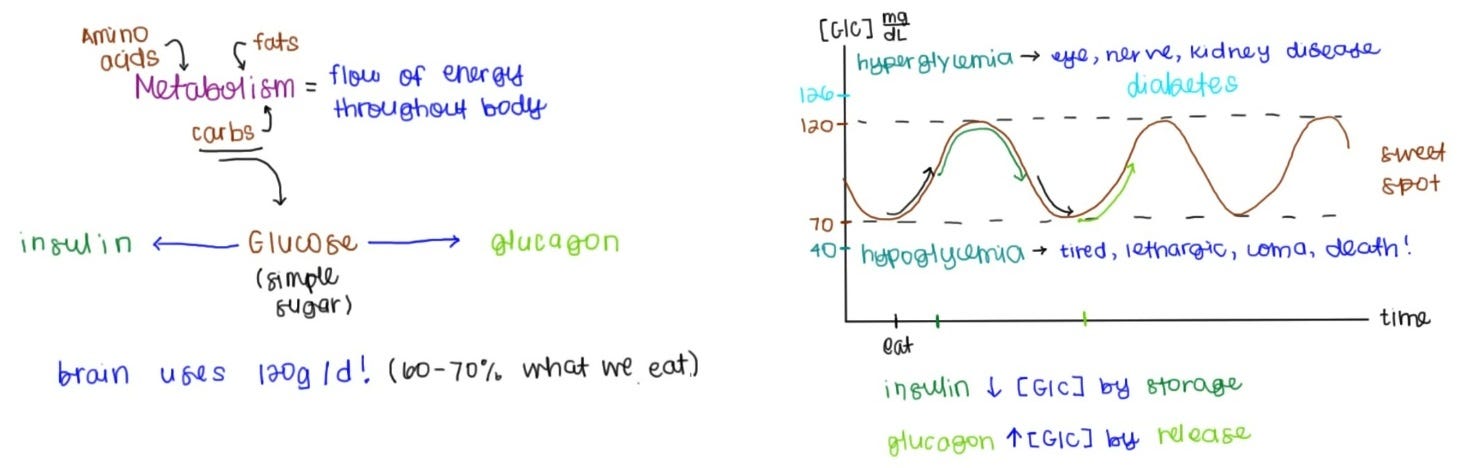 Amino
acids
fats
Metabolism = flow of energy
throughout body
carbs
insulin ← Glucose → glucagon
(simple
sugar)
brain uses 120g/d! (60-70% what we eat)
[Glc] mg/dL
hyperglycemia → eye, nerve, kidney disease
diabetes
126
120
sweet
spot
70
40
hypoglycemia → tired, lethargic, coma, death!
time
eat
insulin ↓ [Glc] by storage
glucagon ↑ [Glc] by release